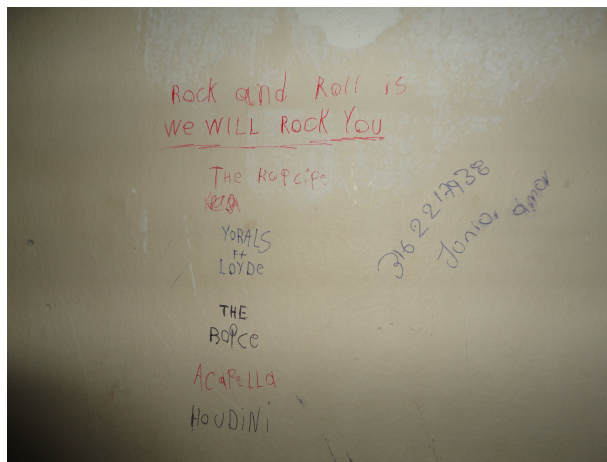 Rock and Roll is
We WILL ROCK YOU
THE
YORALS
Ft
LOYDe
THE
BOPCE
ACaPeLLa
HOUDiNi
316 2217938
Junior amor